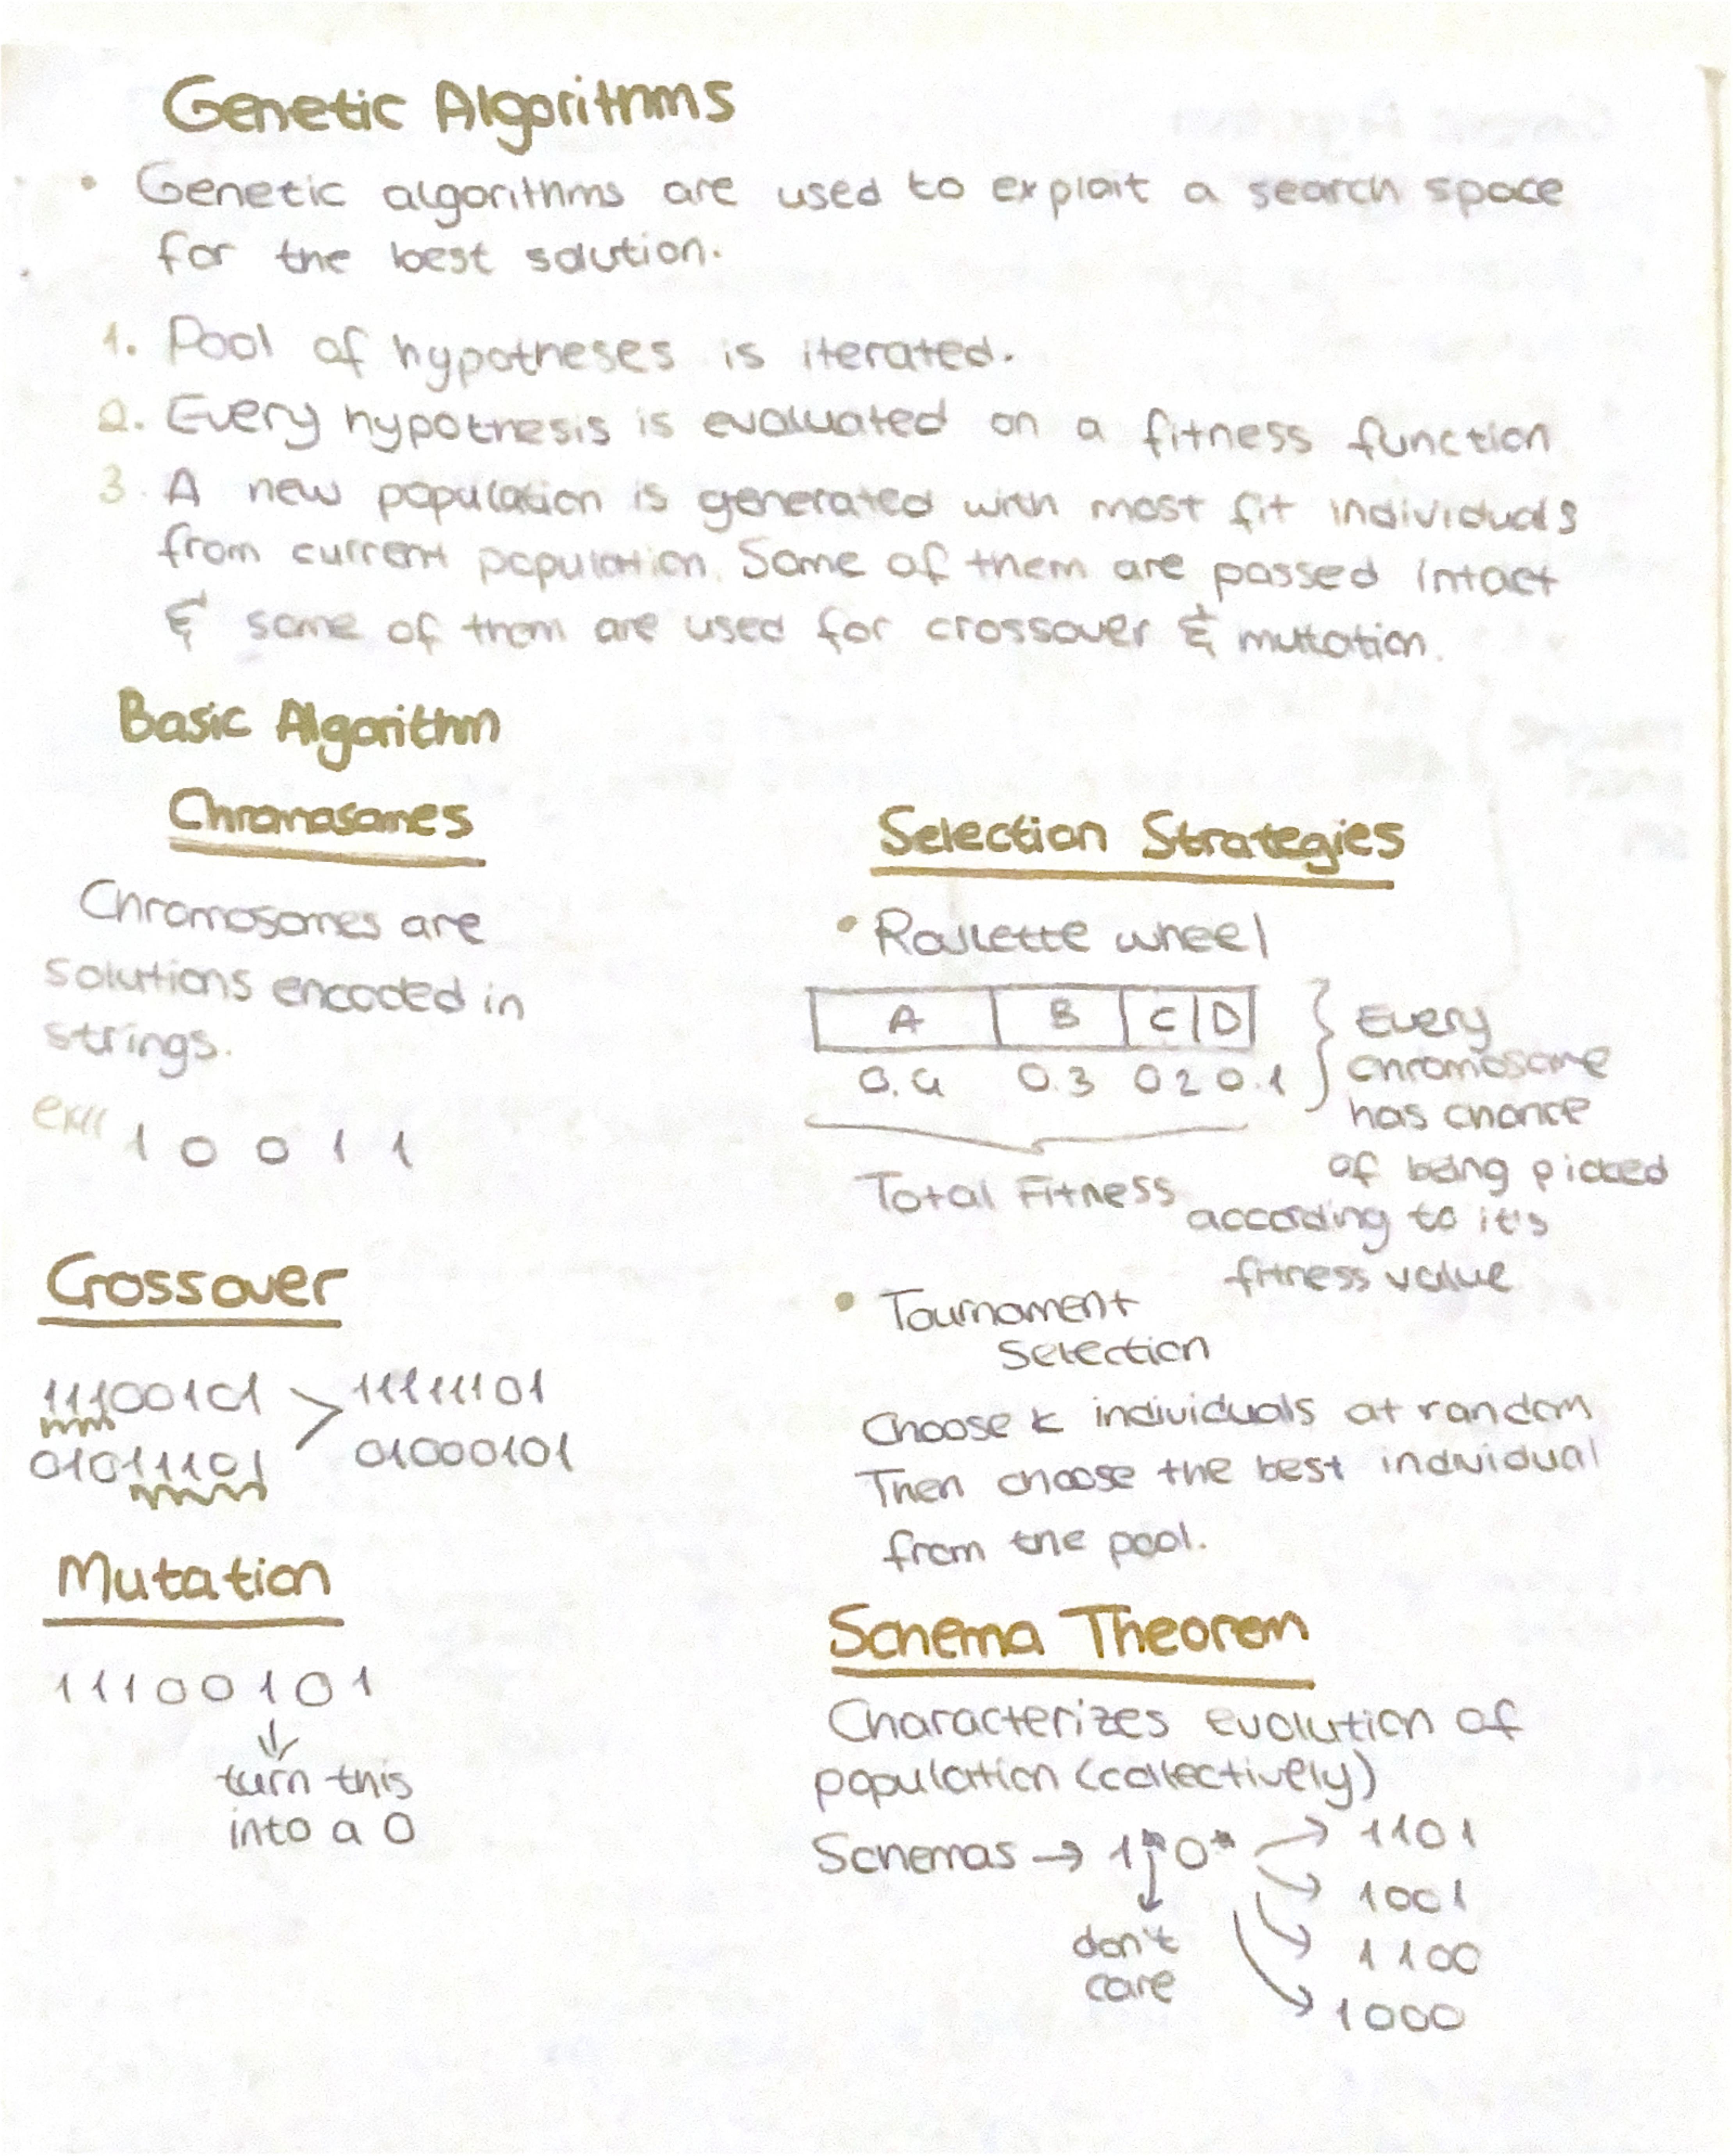 Genetic Algorithms
• Genetic algorithms are used to exploit a search space
for the best solution.
1. Pool of hypotheses is iterated.
2. Every hypothesis is evaluated on a fitness function
3. A new population is generated with most fit individuals
from current population. Some of them are passed intact
& some of them are used for crossover & mutation.
Basic Algorithm
Chromosomes
Chromosomes are
solutions encoded in
strings.
1 0 0 1 1
Crossover
11100101 > 11111101
01011101 01000101
Mutation
11100101
↓
turn this
into a 0
Selection Strategies
• Roulette wheel
A B C D
0.4 0.3 0.2 0.1
Total Fitness
} Every
chromosome
has chance
of being picked
according to it's
fitness value
• Tournament
Selection
Choose k individuals at random
Then choose the best individual
from the pool.
Schema Theorem
Characterizes evolution of
population (collectively)
Schemas → 1*0* → 1101
→ 1001
→ 1100
→ 1000
don't
care